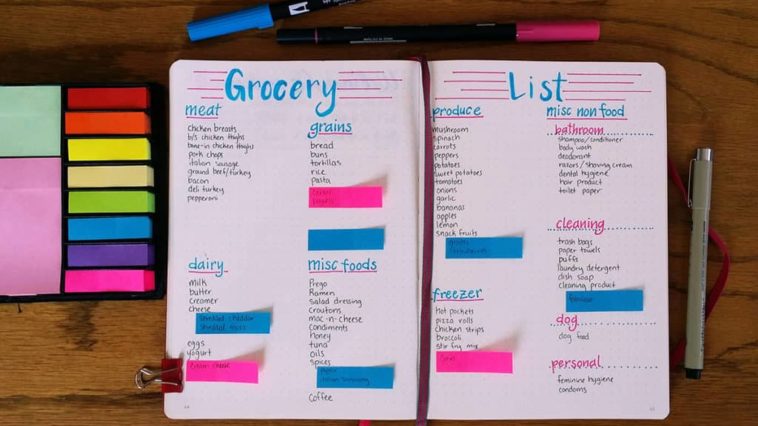 Grocery List
meat
chicken breasts
b/s chicken thighs
bone-in chicken thighs
pork chops
italian sausage
ground beef/turkey
bacon
deli turkey
pepperoni
grains
bread
buns
tortillas
rice
pasta
dairy
milk
butter
creamer
cheese
shredded cheddar
shredded
eggs
yogurt
cream cheese
misc foods
Prego
Ramen
salad dressing
croutons
mac-n-cheese
condiments
honey
tuna
oils
spices
Coffee
produce
mushroom
spinach
carrots
peppers
potatoes
sweet potatoes
tomatoes
onions
garlic
bananas
apples
lemon
snack fruits
freezer
hot pockets
pizza rolls
chicken strips
broccoli
stir fry mix
misc non food
bathroom
shampoo/conditioner
body wash
deodorant
razors/shaving cream
dental hygiene
hair product
toilet paper
cleaning
trash bags
paper towels
puffs
laundry detergent
dish soap
cleaning product
dog
dog food
personal
feminine hygiene
condoms